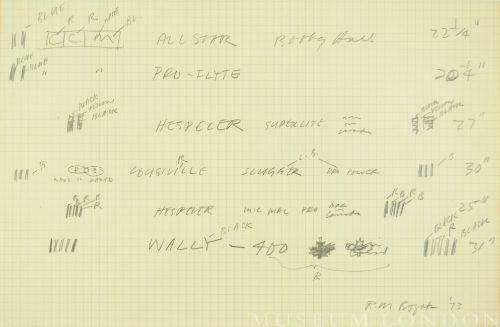 BLUE
R R BL
CCM ALL STAR Bobby Hull 22 1/4"
BLUE BLACK " " PRO-FLYTE 20 1/4"
BLACK YELLOW BLACK HESPELER SUPERLITE BLACK YELLOW BLACK 27"
B MADE IN CANADA LOUISVILLE R SLUGGER L.B. PRO POWER B 30"
R B R HESPELER MIC MAC PRO MADE Canada R B R B 25"
WALLY BLACK - 400 BLACK R BLACK 31"
R
'73
MUSEUM LONDON